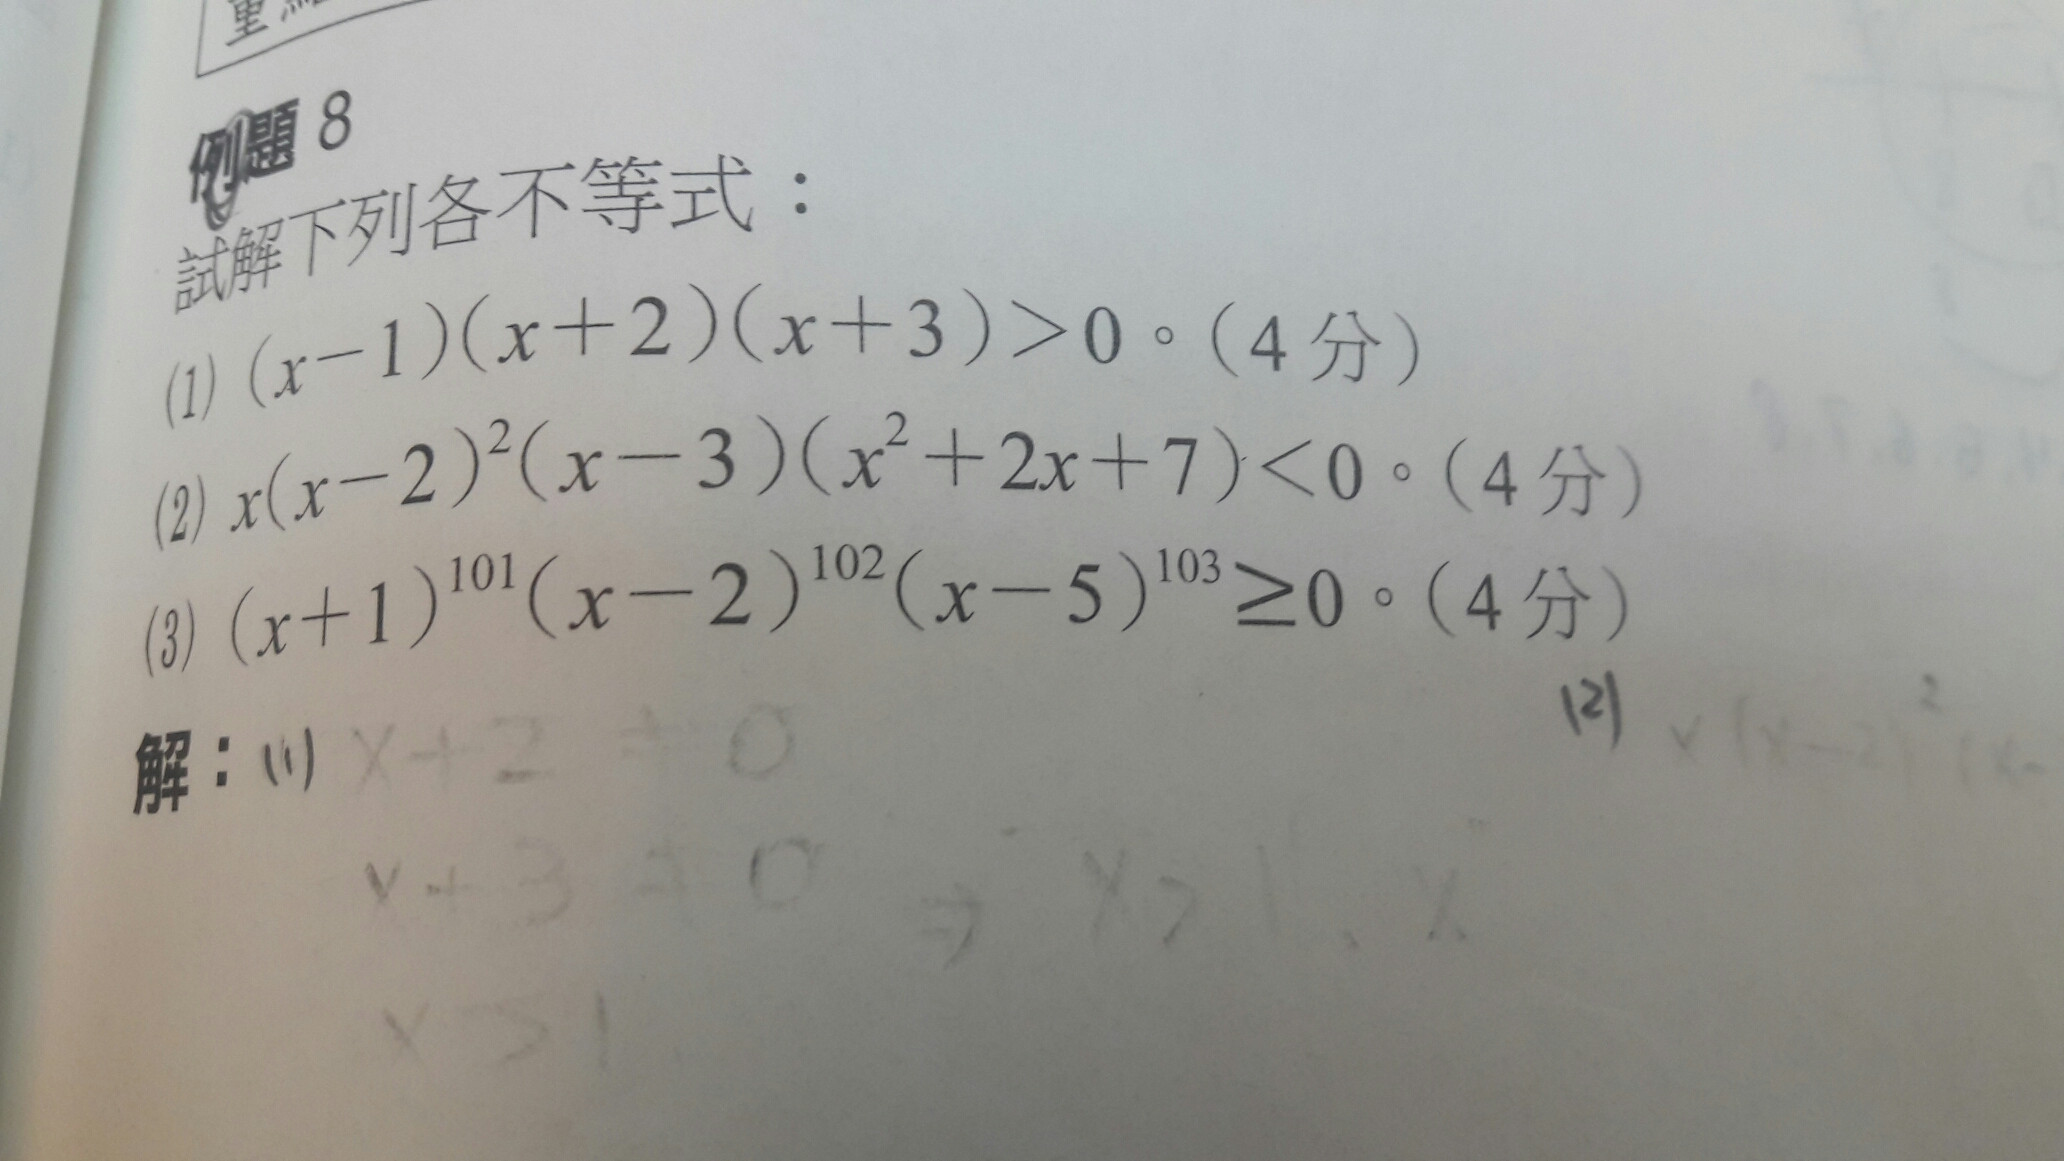 重
例題 8
試解下列各不等式：
(1) (x−1)(x+2)(x+3)>0。(4 分)
(2) x(x−2)²(x−3)(x²+2x+7)<0。(4 分)
(3) (x+1)¹⁰¹(x−2)¹⁰²(x−5)¹⁰³≥0。(4 分)
解：(1) x+2 ≠ 0
x+3 ≠ 0 ⇒ x>1, x
x>1
(2) x(x−2)²(x−